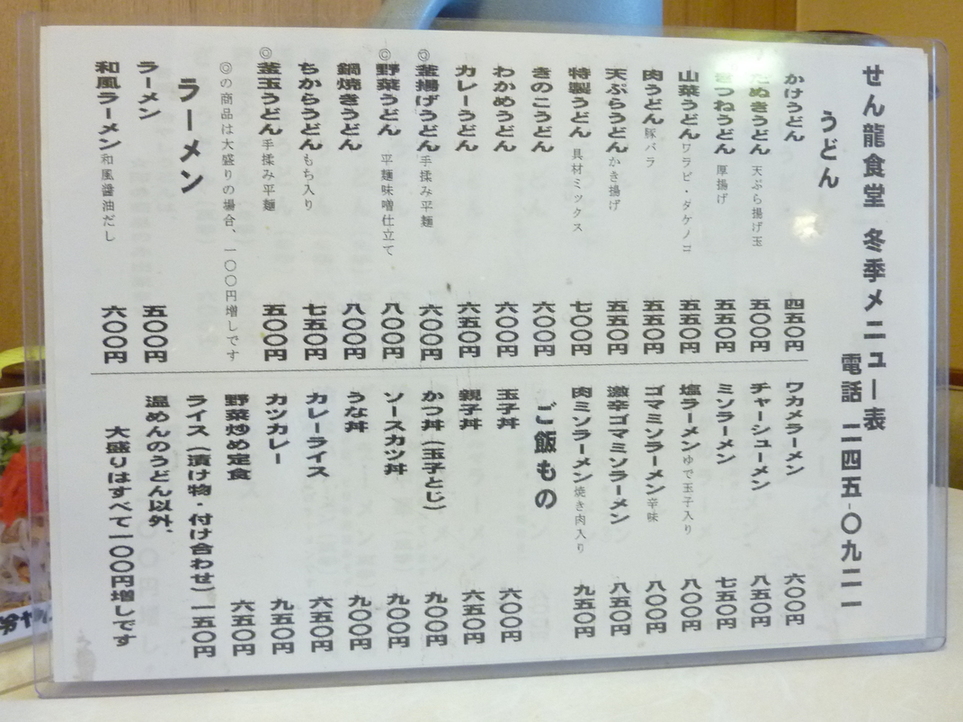 せん龍食堂 冬季メニュー表
電話 二四五-〇九二一
うどん
かけうどん 四五〇円
たぬきうどん 天ぷら揚げ玉 五〇〇円
きつねうどん 厚揚げ 五五〇円
山菜うどん ワラビ・タケノコ 五五〇円
肉うどん 豚バラ 五五〇円
天ぷらうどん かき揚げ 五五〇円
特製うどん 具材ミックス 七〇〇円
きのこうどん 六〇〇円
わかめうどん 六〇〇円
カレーうどん 六五〇円
◎釜揚げうどん 手揉み平麺 六〇〇円
◎野菜うどん 平麺味噌仕立て 八〇〇円
鍋焼きうどん 八〇〇円
ちからうどん もち入り 七五〇円
◎釜玉うどん 手揉み平麺 五〇〇円
◎の商品は大盛りの場合、一〇〇円増しです
ラーメン
ラーメン 五〇〇円
和風ラーメン 和風醤油だし 六〇〇円
ワカメラーメン 六〇〇円
チャーシューメン 八五〇円
ミソラーメン 七五〇円
塩ラーメン ゆで玉子入り 八〇〇円
ゴマミソラーメン 辛味 八〇〇円
激辛ゴマミソラーメン 八五〇円
肉ミソラーメン 焼き肉入り 九五〇円
ご飯もの
玉子丼 六〇〇円
親子丼 六五〇円
かつ丼(玉子とじ) 九〇〇円
ソースカツ丼 九〇〇円
うな丼 九〇〇円
カレーライス 六五〇円
カツカレー 九五〇円
野菜炒め定食 六五〇円
ライス(漬け物・付け合わせ) 一五〇円
温めんのうどん以外、
大盛りはすべて一〇〇円増しです